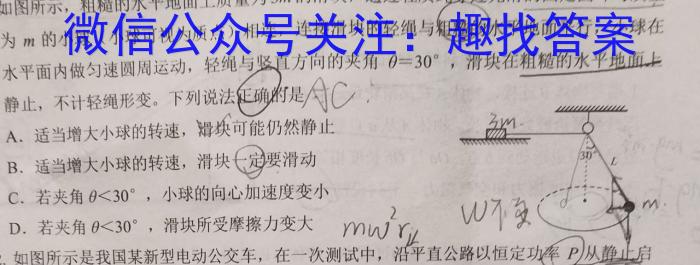 如图所示，粗糙的水平地面上质量为3m的滑块
微信公众号关注：趣找答案
为 m 的小
水平面内做匀速圆周运动，轻绳与竖直方向的夹角 θ=30°，滑块在粗糙的水平地面上
静止，不计轻绳形变。下列说法正确的是 AC.
A．适当增大小球的转速，滑块可能仍然静止
B．适当增大小球的转速，滑块一定要滑动
C．若夹角 θ<30°，小球的向心加速度变小
D．若夹角 θ<30°，滑块所受摩擦力变大
3m
30°
L
m
W不变
mw²r
如图所示是我国某新型电动公交车，在一次测试中，沿平直公路以恒定功率 P 从静止启